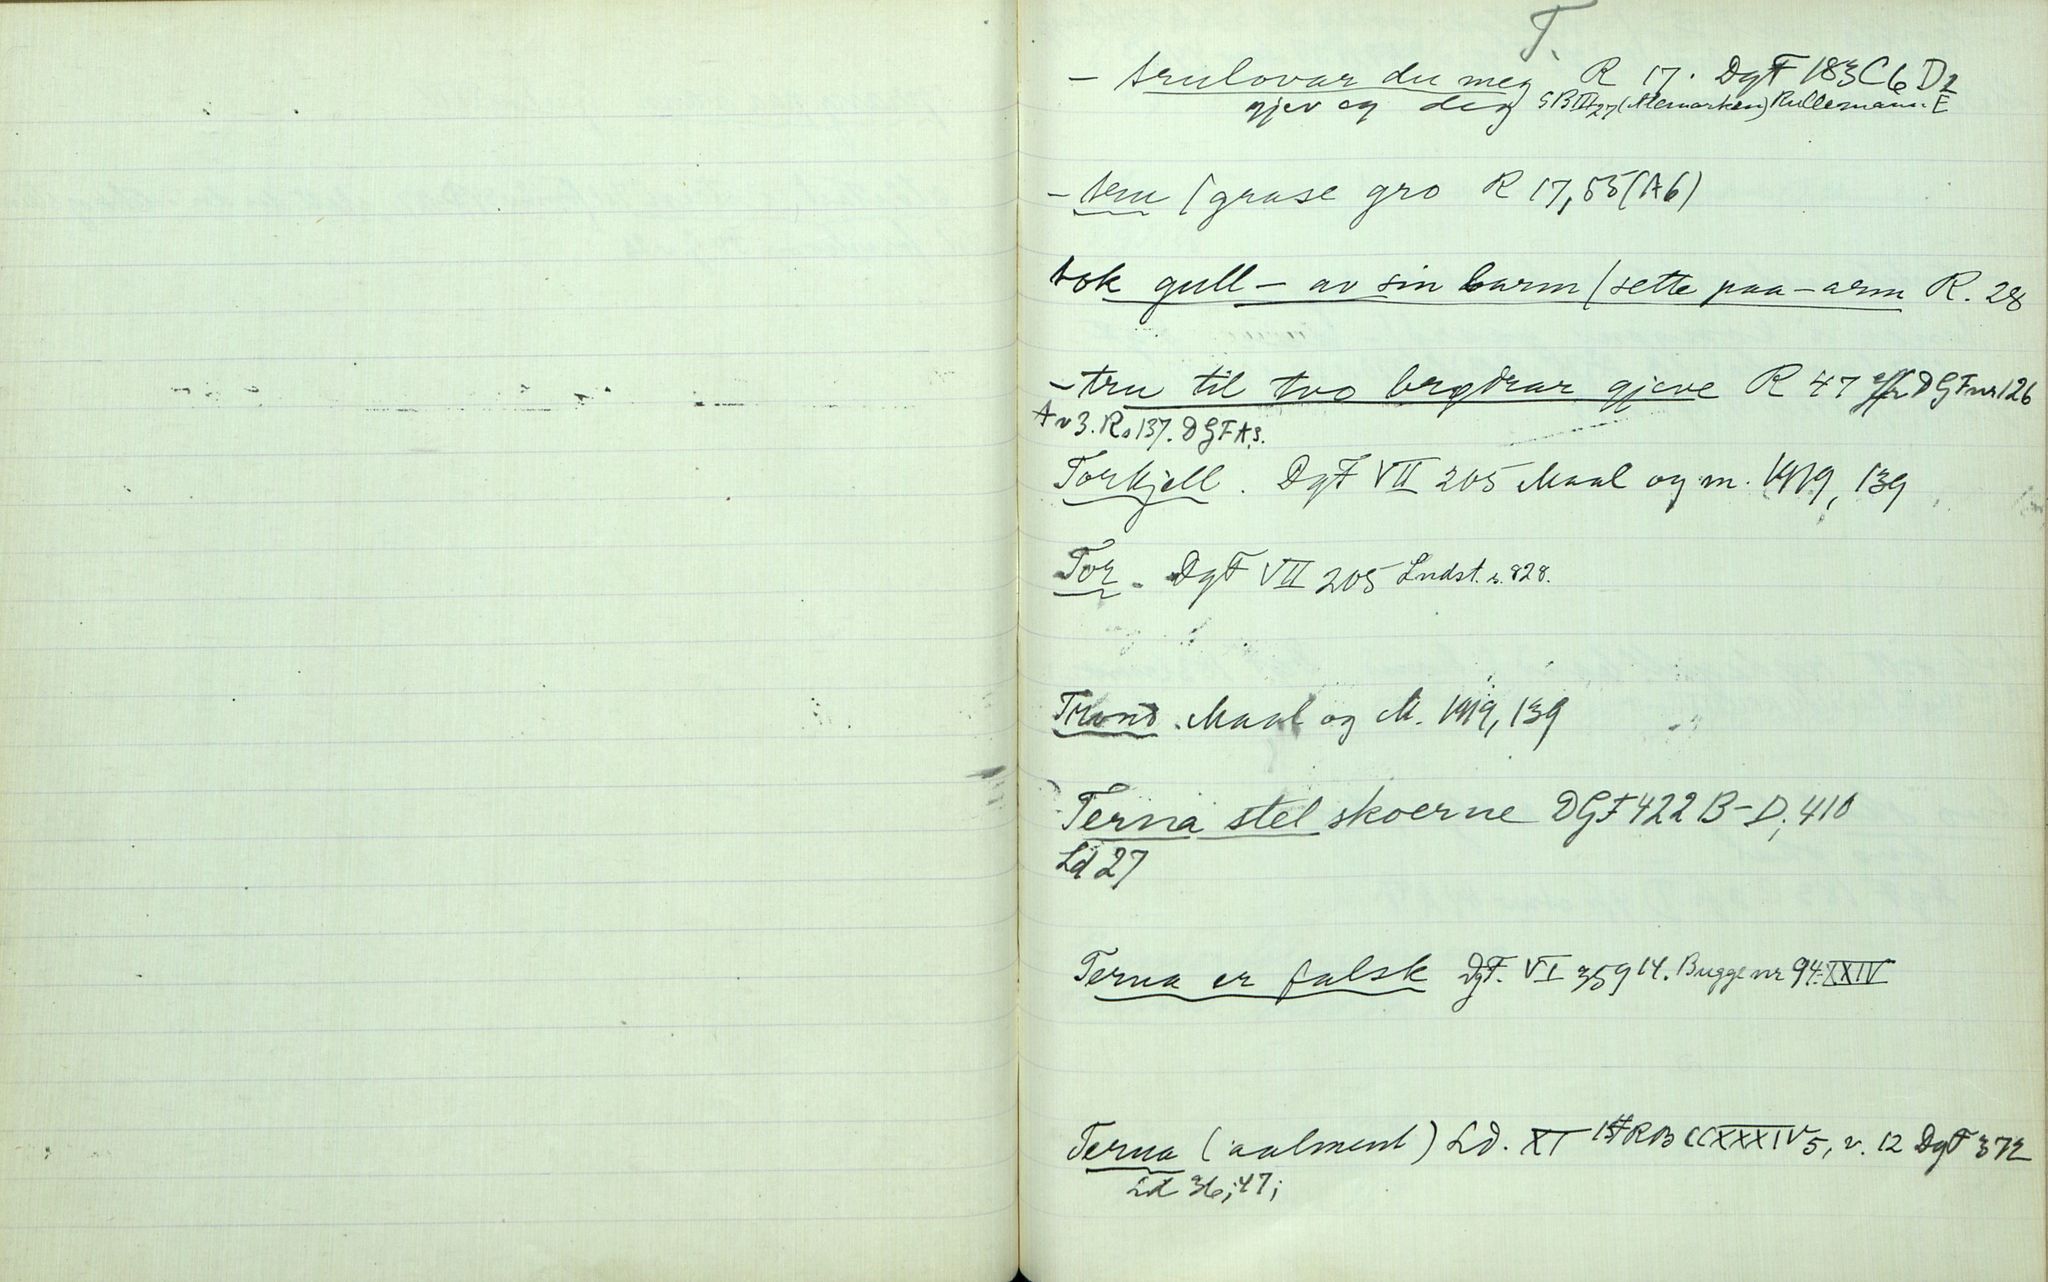 T.
- trulovar du meg R 17. DgF 183 C6 D2
gjev eg deg SB III 27 (Atemarken) Rullemann. E
- tru / grase gro R 17,55 (A6)
tok gull - av sin barm / sette paa - arm R. 28
- tru til tvo brødrar gjeve R 47 DGF nr 126
A v 3. R. 137. DGF A 3.
Torkjell. DgF VII 205 Maal og m. 1919, 139
Tor. DgF VII 205 Lndst. s. 828.
Trond. Maal og M. 1919, 139
Terna stel skoerne DGF 422 B-D; 410
Ld 27
Terna er falsk DgF. VI 359 14. Bugge nr 94. XXIV
Terna (aalment) Ld. XI RB CCXXXIV 5, v. 12 DgF 372
Ld 36; 47;